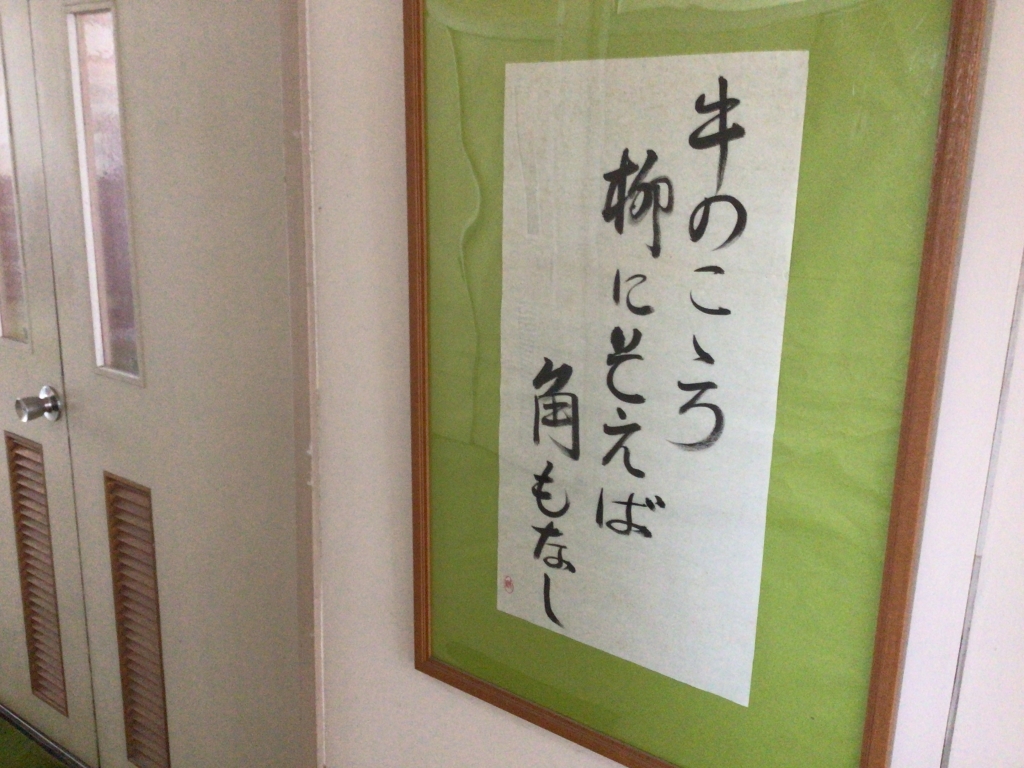 牛のこゝろ
柳にそえば
角もなし